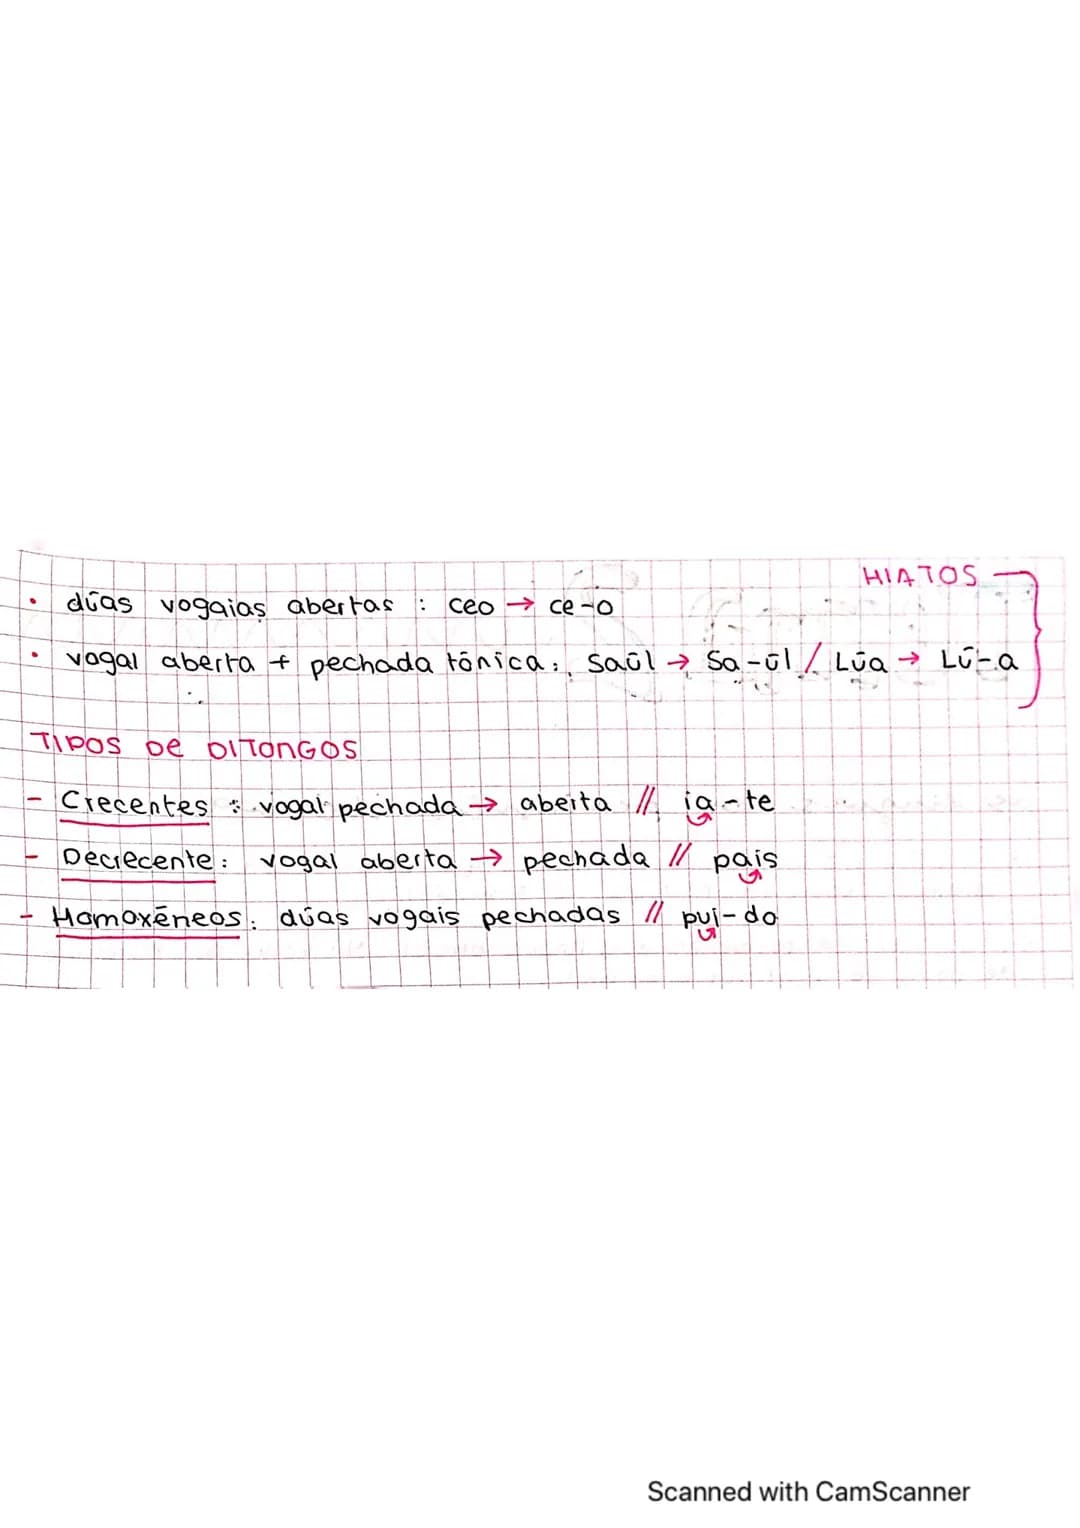 HIATOS
• dúas vogaias abertas : ceo → ce-o
• vogal aberta + pechada tónica: Saúl → Sa-úl / Lúa → Lú-a
TIPOS DE DITONGOS
- Crecentes : vogal pechada → aberta // ia-te
- Decrecente: vogal aberta → pechada // pais
- Homoxéneos: dúas vogais pechadas // pui-do
Scanned with CamScanner